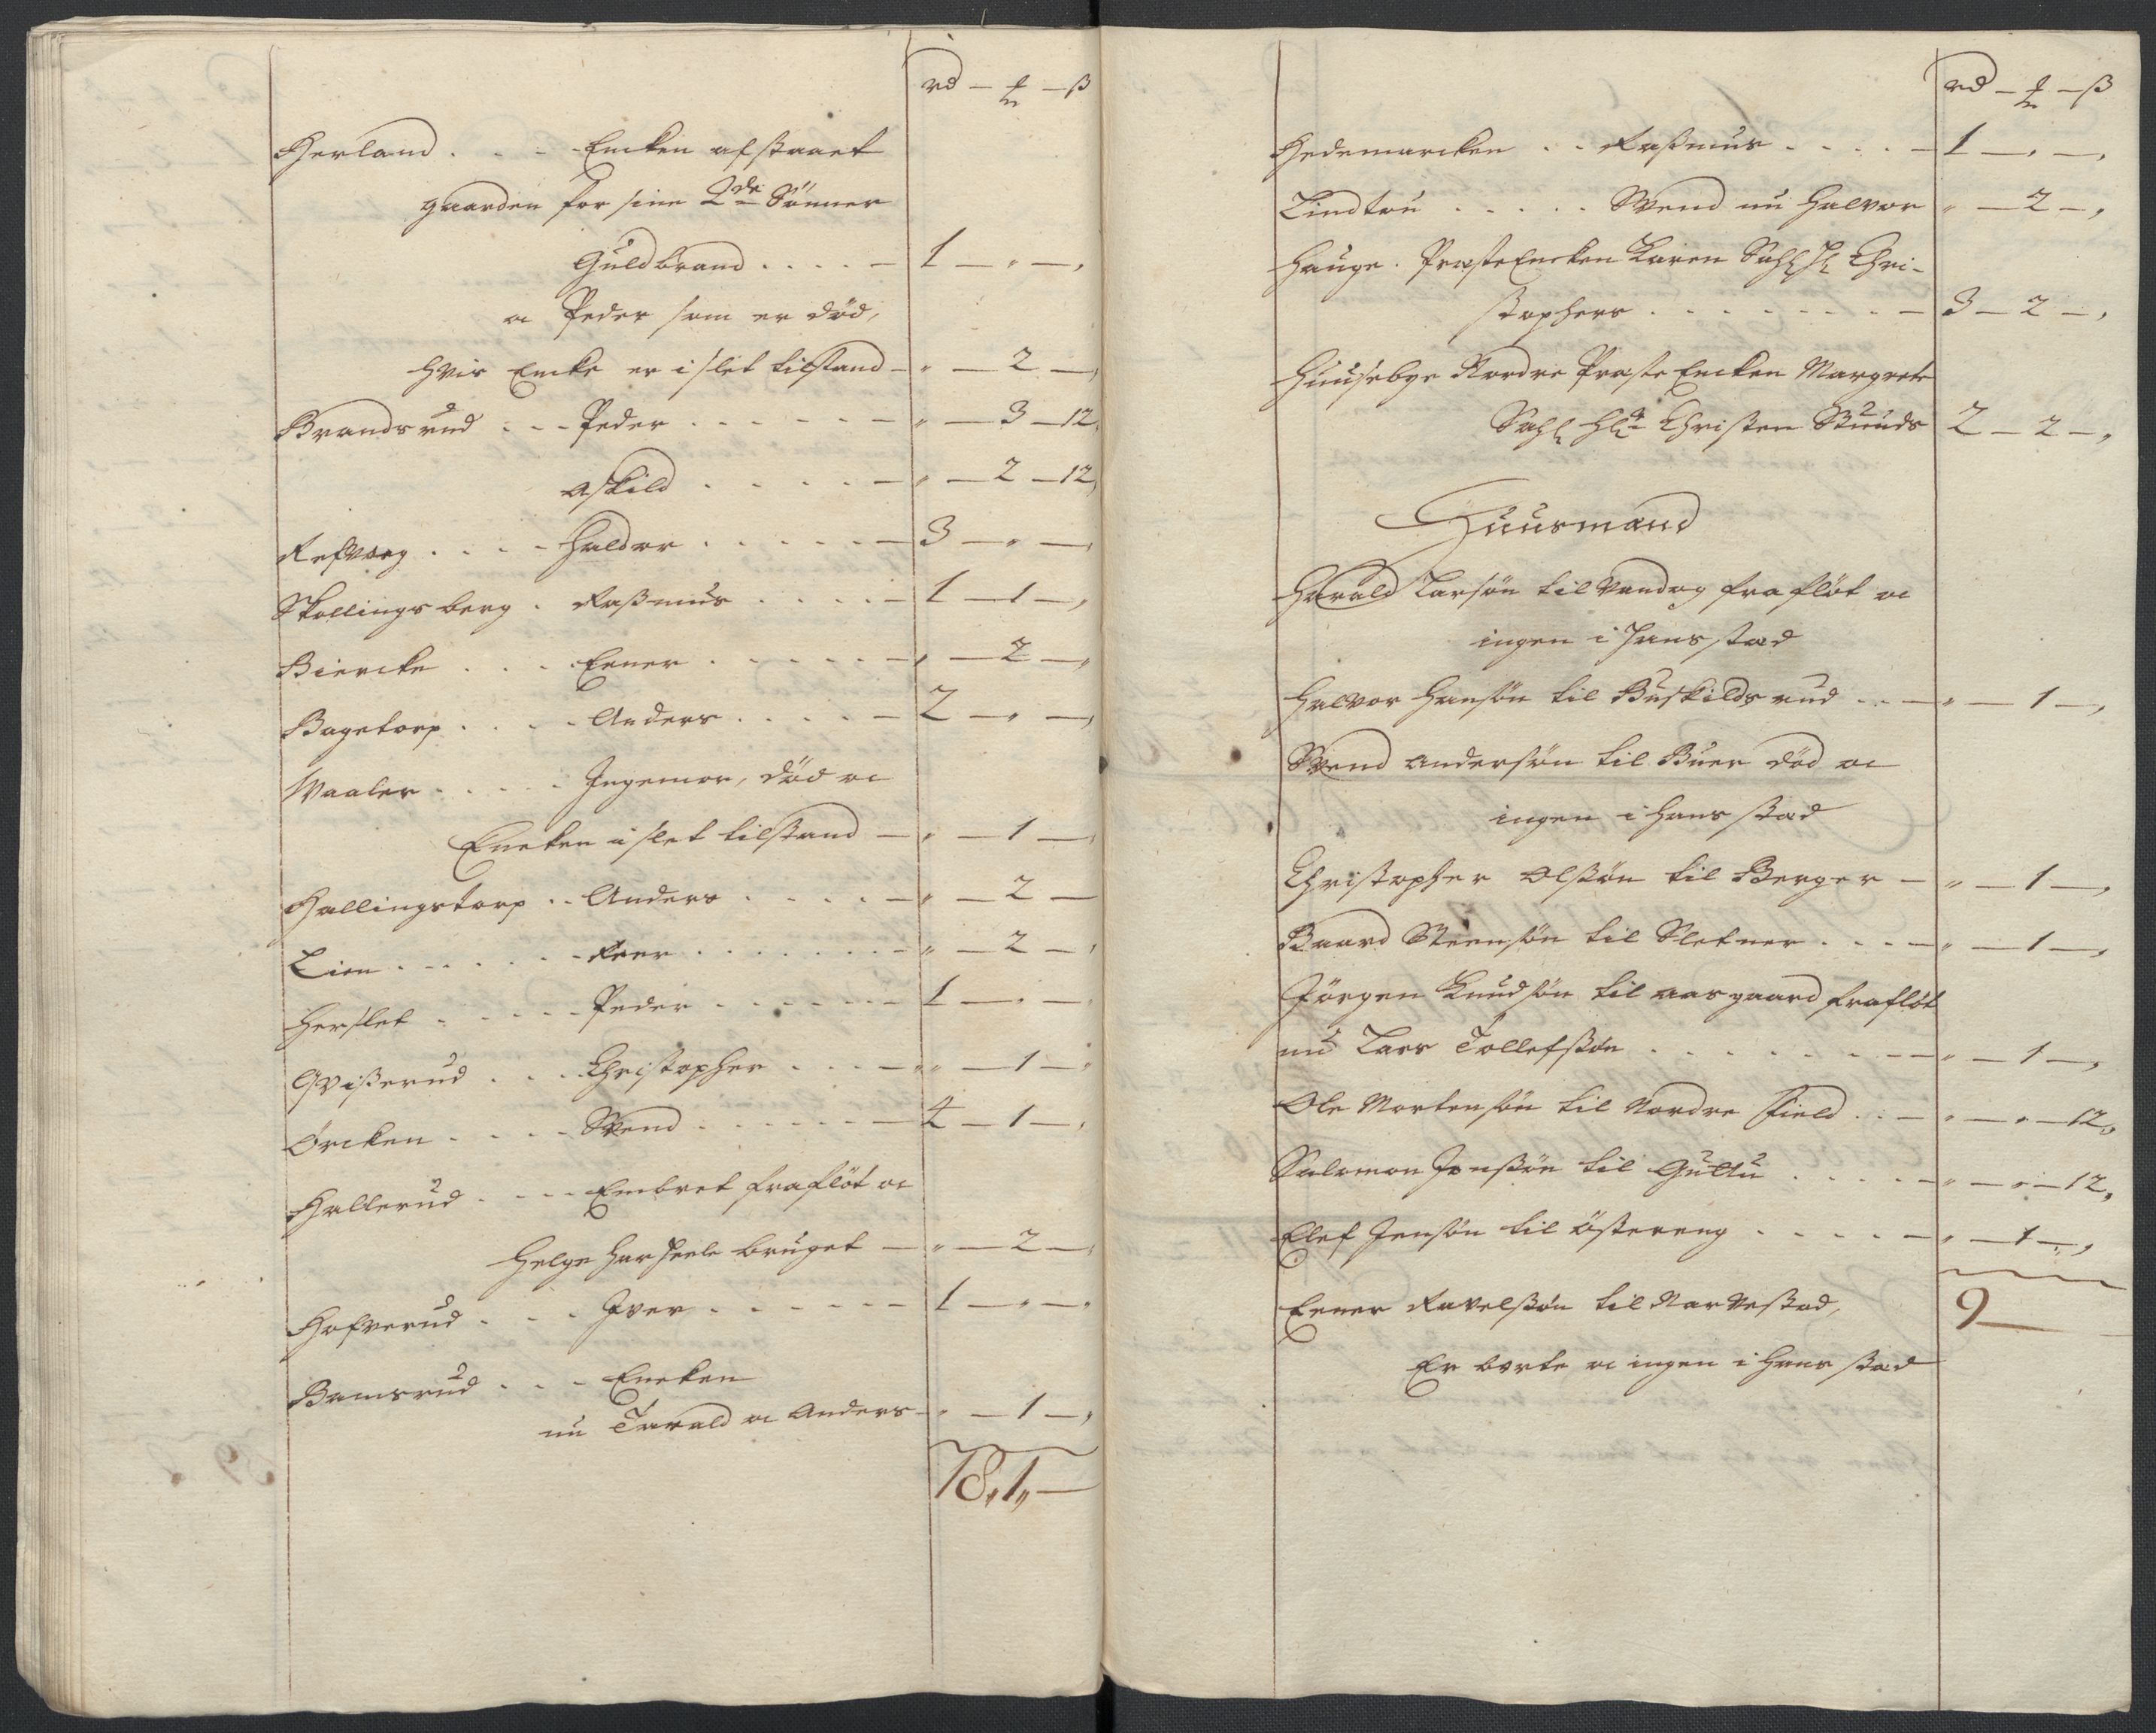 rd – ₰ – ß
Herland . . . Encken afstaaet
gaarden for sine 2de Sönner
Guldbrand . . . . – 1 – „ – „
oc Peder som er död,
hvis Encke er i slet tilstand – „ – 2 – „
Brandsrud . . . Peder . . . . . – „ – 3 – 12
Askild . . . . . – „ – 2 – 12
Refvoeg . . . . Haldor . . . . . – 3 – „ – „
Skollingsberg . Rasmus . . . . – 1 – 1 – „
Biercke . . . . Eener . . . . . – „ – 2 – „
Bagetorp . . . . Anders . . . . – 2 – „ – „
Waaler . . . . . Ingemor, död oc
Encken i slet tilstand – „ – 1 – „
Hallingstorp . . Anders . . . . – „ – 2 –
Lien . . . . . . Reer . . . . . . – „ – 2 – „
Herslet . . . . . Peder . . . . . – 1 – „ –
Qvißerud . . . Christopher . . . – „ – 1 – „
Örcken . . . . Svend . . . . . – 4 – 1 – „
Hallerud . . . . Embret fraflöt oc
Helge har heele bruget – „ – 2 – „
Hofverud . . . Iver . . . . . – 1 – „ – „
Bamsrud . . . Encken
nu Tarald oc Anders – „ – 1 – „
78„1„ –
rd – ₰ – ß
Hedemarcken . . Rasmus . . . . – 1 – „ – „
Lindtou . . . . . Svend nu Halvor „ – 2 – „
Hauge . Præste Encken Karen Sahl Hr Chri-
stophers . . . . . . . – 3 – 2 – „
Huusebye Nordre Præste Encken Margrete
Sahl Hr Christen Stuuds 2 – 2 – „
Huusmænd
Harald Larsön til Vandog fraflöt oc
ingen i hans stad
Halvor Hansön til Buskildsrud . . – „ – 1 – „
Svend Andersön til Buer död oc
ingen i hans stad
Christopher Olsön til Berger – „ – 1 – „
Baard Steensön til Sletner . . . – „ – 1 – „
Jörgen Knudsön til Aasgaard fraflöt
nu Lars Tollefsön . . . . . . . – „ – 1 – „
Ole Mortensön til Nordre Field . . – „ – „ – 12„
Salomon Jonsön til Guttu . . . . . – „ – „ – 12„
Elef Jensön til Östereng . . . . . – „ – 1 – „
9 –
Eener Ravelsön til Narvestad,
Er borte oc ingen i hans stad